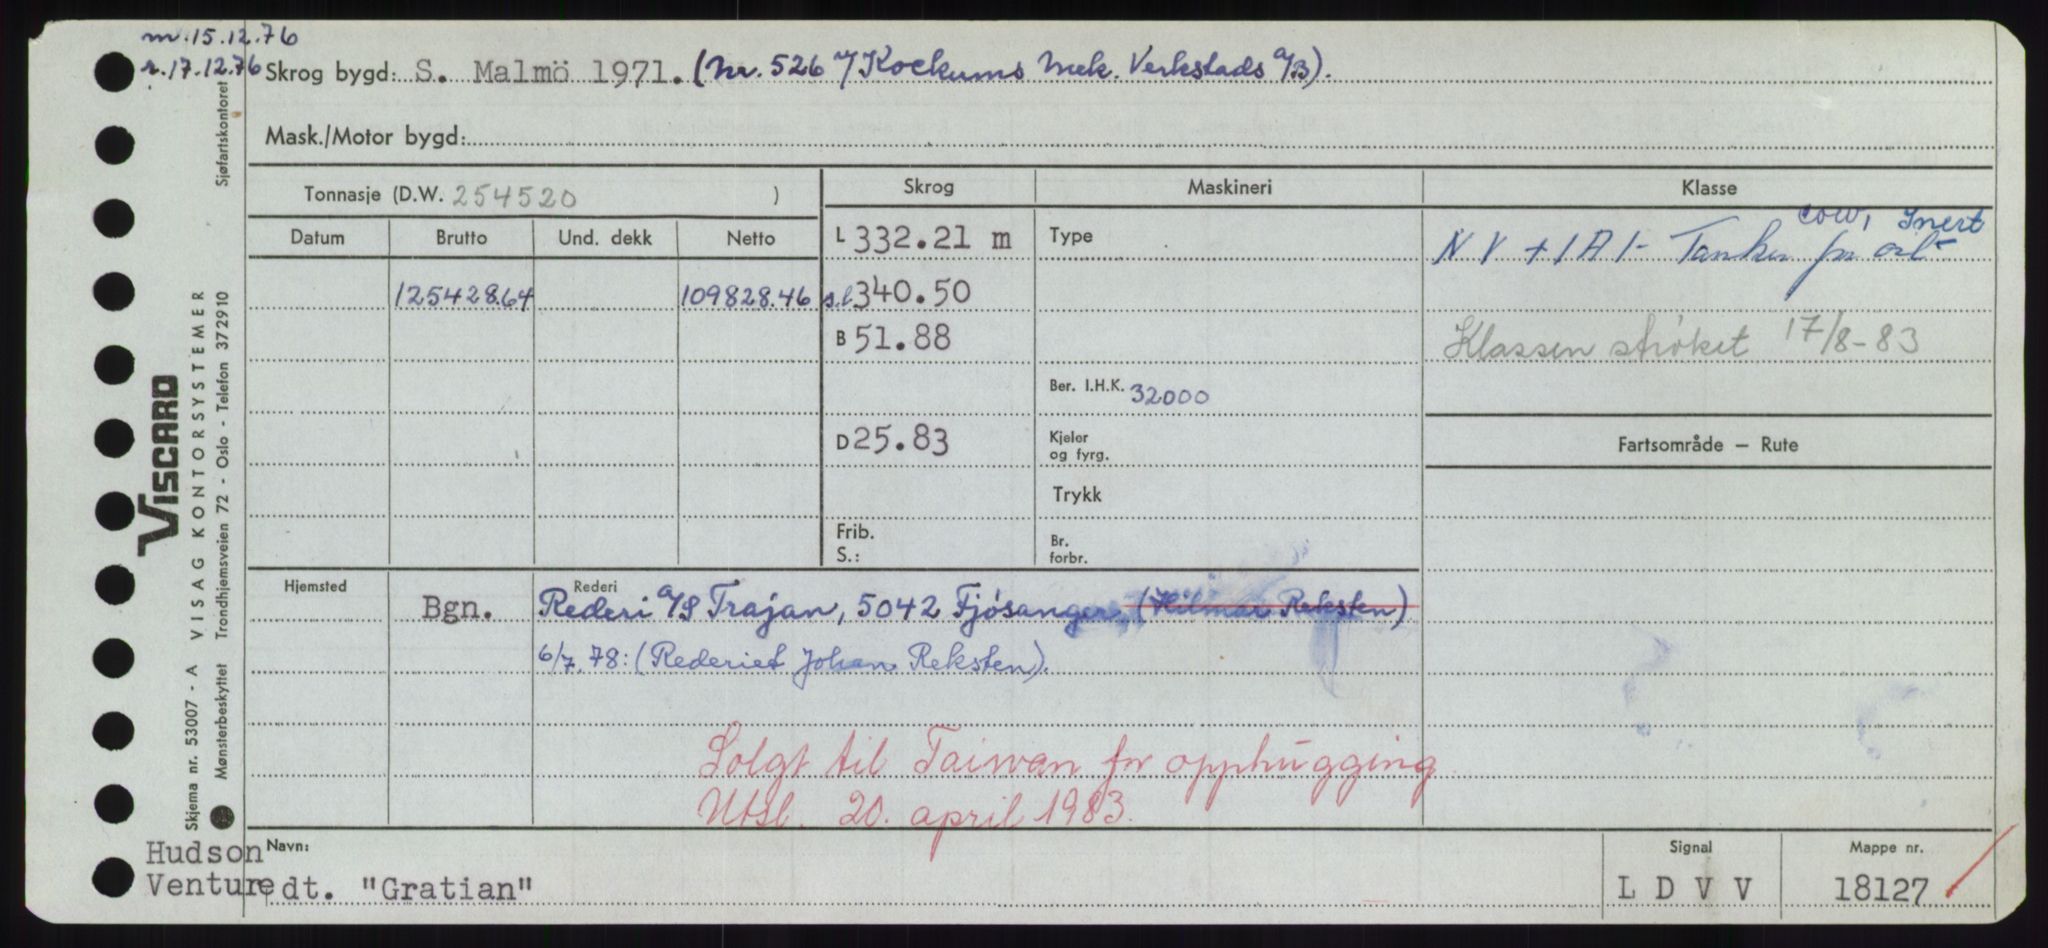 m. 15.12.76
r. 17.12.76
Skrog bygd: S. Malmö 1971. (Nr. 526 v/ Kockums Mek. Verkstads A/B).
Mask./Motor bygd:
Tonnasje (D.W. 254520 )
Skrog Maskineri Klasse
Datum Brutto Und. dekk Netto
L 332.21 m Type
cow, Inert
N V + 1 A 1 - Tanker for olt
125428.64 109828.46 s.l 340.50
B 51.88
Klassen strøket 17/8-83
Ber. I.H.K. 32000
D 25.83 Kjeler og fyrg.
Fartsområde — Rute
Trykk
Frib.
S.:
Br. forbr.
Hjemsted Rederi
Bgn. Rederi A/S Trajan, 5042 Fjøsanger, (Hilmar Reksten)
6/7.78: (Rederiet Johan Reksten).
Solgt til Taiwan for opphugging.
Utsl. 20. april 1983.
Navn: Signal Mappe nr.
Hudson
Venture dt. "Gratian" L D V V 18127
VISCARD
Skjema nr. 53007 - A VISAG KONTORSYSTEMER
Mønsterbeskyttet Trondhjemsveien 72 - Oslo - Telefon 372910 Sjøfartskontoret